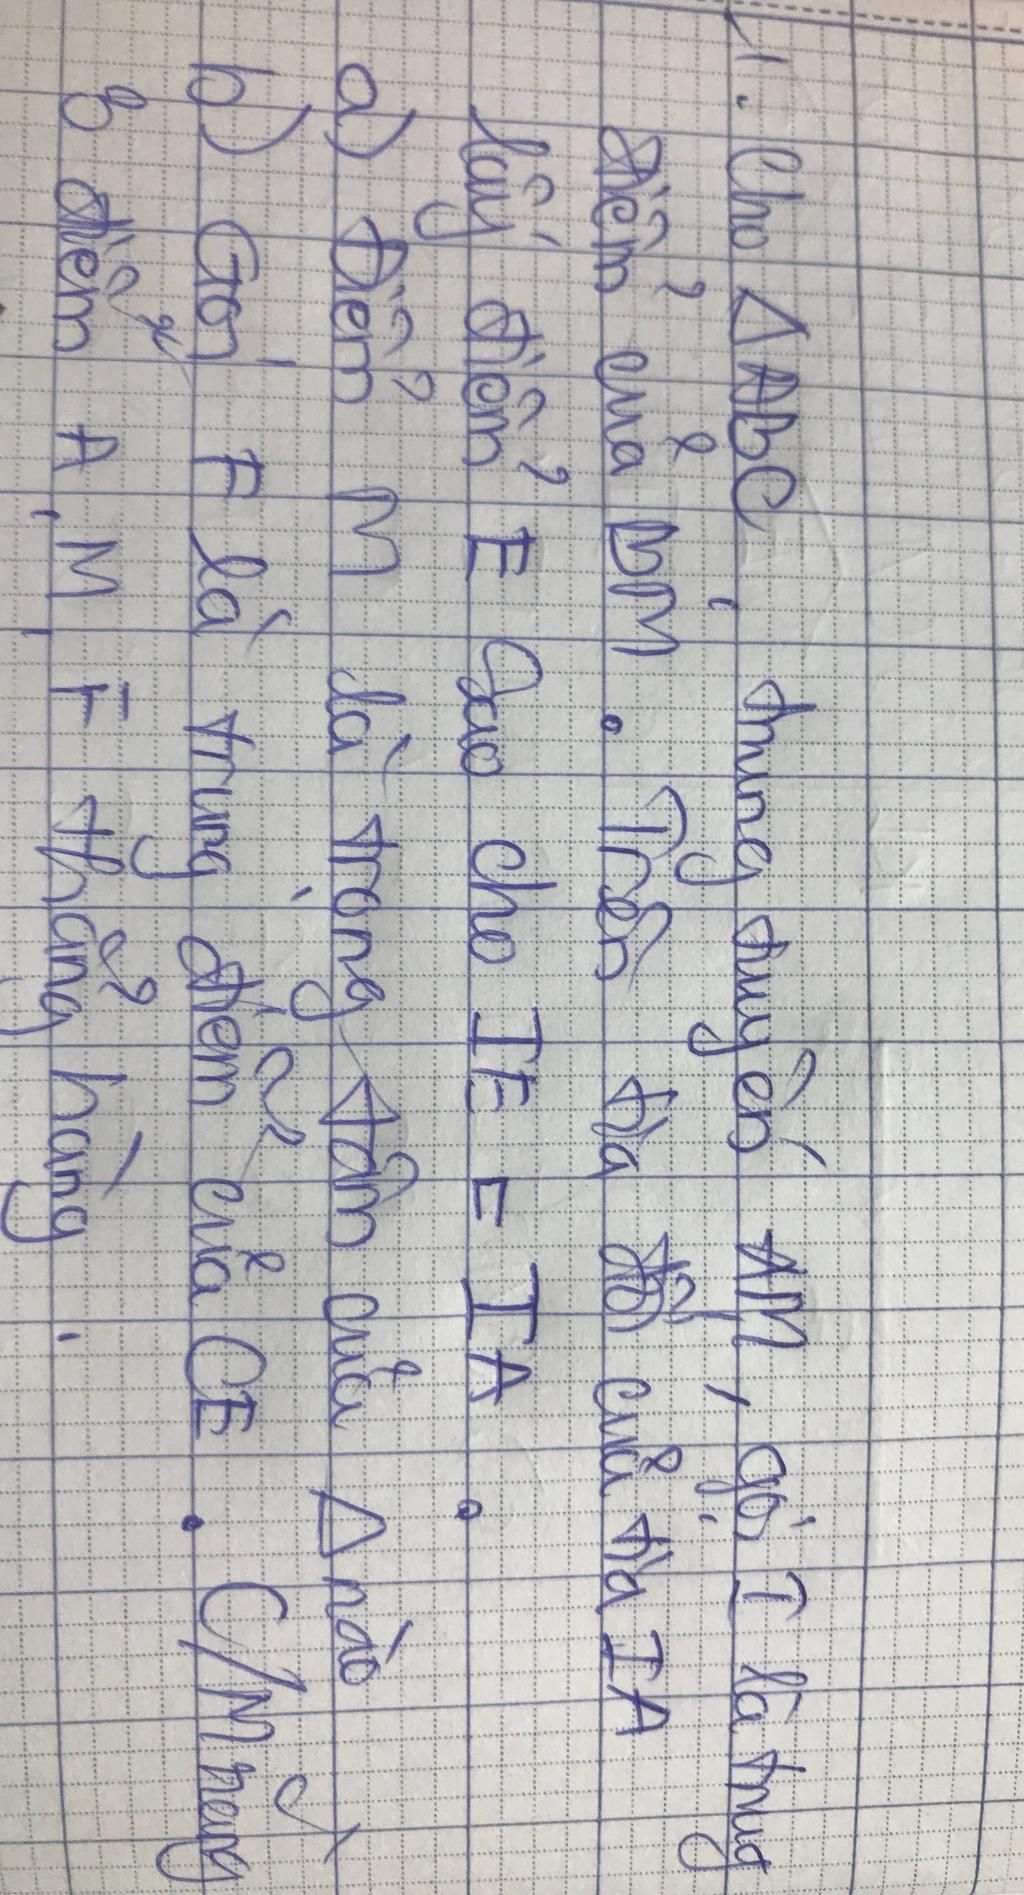 1. Cho ΔABC, trung tuyến AM, gọi I là trung
điểm của BM. Trên tia đối của tia IA
lấy điểm E sao cho IE = IA.
a) Điểm M là trọng tâm của Δ nào
b) Gọi F là trung điểm của CE. C/M rằng
3 điểm A, M, F thẳng hàng.